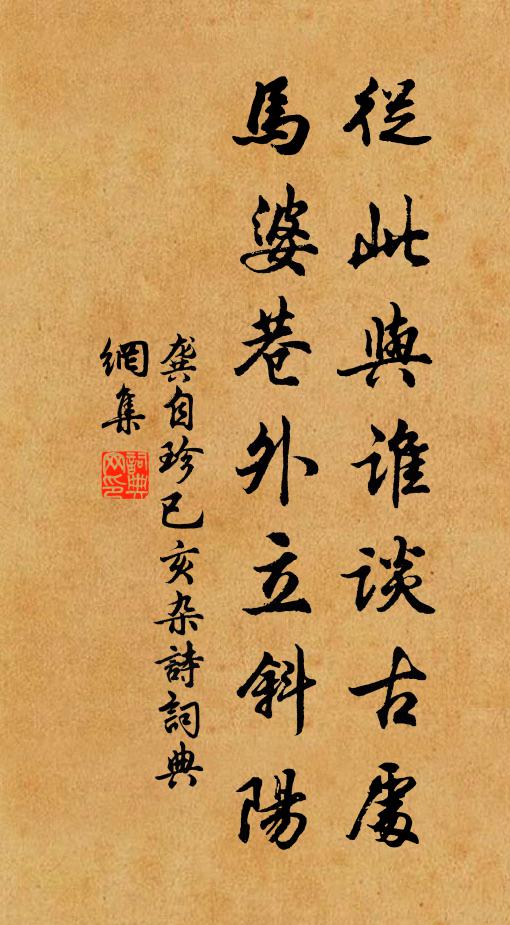 從此與誰談古處
馬婆巷外立斜陽
龔自珍已亥杂詩詞典
網集
詞典
网印